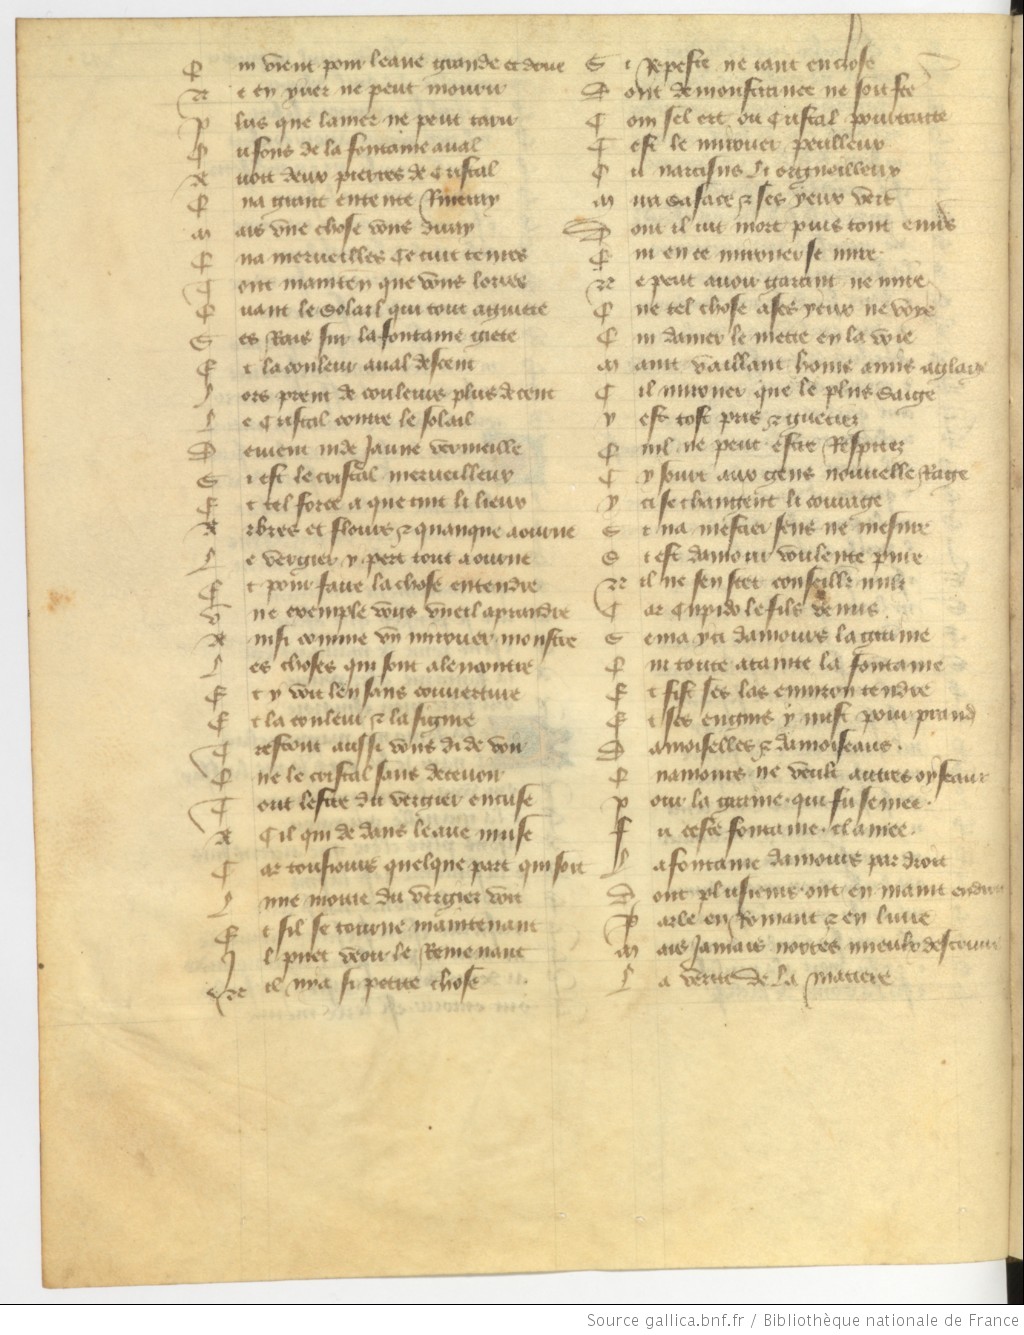 Qui vient pour leaue grande et doue
Ne en yver ne peut mourir
Plus que la mer ne peut tarir
Au fons de la fontaine aval
Avoit deux pierres de Cristal
Qua grant entente Remiray
Mais une chose vous diray
Qua merveilles Ce cuit tenres
Tout mainten que vous lorres
Quant le Solail qui tout aguitte
Ses Rais sur la fontaine giete
Et la couleur aval descent
Lors prent de couleurs plus de cent
Le Cristal contre le solail
Devient inde Jaune vermeille
Si est le cristal merveilleux
Et tel force a que tint li lieux
Arbres et flours & quanque aourne
Le vergier y pert tout aourne
Et pour faire la chose entendre
Une exemple vous vueil aprandre
Ainsi comme un mirouer monstre
Les choses qui sont alencontre
Et y voit len sans couverture
Et la couleur & la figure
Trestout aussi vous di de voir
Que le cristal sans decevoir
Tout lestre du vergier encuse
A Cil qui dedans leaue muse
Car tousjours quelque part qui soit
Lune moitie du vergier voit
Et sil se tourne maintenant
Il puet veoir le Remenant
Ne il nya si petite chose
Si Reposte ne tant enclose
Dont demonstrance ne soit fete
Com sel ert ou Cristal pourtraite
C est le mirouer perilleux
Ou narcisus li orgueilleux
Mira sa face & ses yeux vers
Dont il jut mort puis tout envers
Qui en ce mirouer se mire
Ne peut avoir garant ne mire
Que tel chose a ses yeux ne voye
Qui damer le mette en la voie
Maint vaillant homs a mis a glaive
Cil mirouer que le plus saige
Y est tost pris & guetiez
Qnil ne peut estre Respitez
Cy sourt aux gens nouvelle Rage
Yci se changent li courage
Ci na mestier sens ne mesure
Ci est damour voulente pure
Ne il ne sen scet conseille nulz
Car Cupido le fils venus
Sema yci damours la graine
Qui toute atainte la fontaine
Et fist ses las environ tendre
Et ses engins y mist pour prand
Damoiselles & damoiseaus
Quamours ne veult autres oyseaux
Pour la graine qui fu semee
Fu ceste fontaine clamee
La fontaine damours par droit
Dont plusieurs ont en maint endroit
Parle en Romant & en livre
Mais Jamais norres mieulx descrivre
La verite de La matiere
Source gallica.bnf.fr / Bibliothèque nationale de France